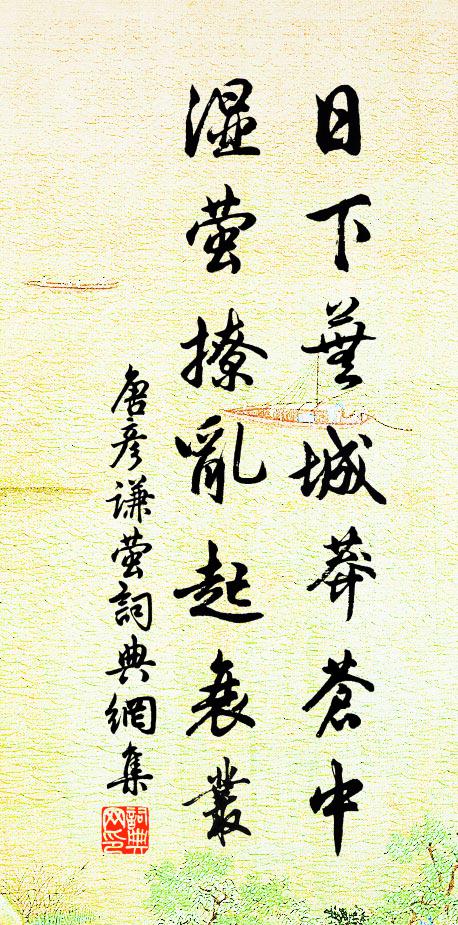 日下蕪城莽蒼中
濕螢撩亂起衰叢
唐彥謙螢詞典網集
詞典網印